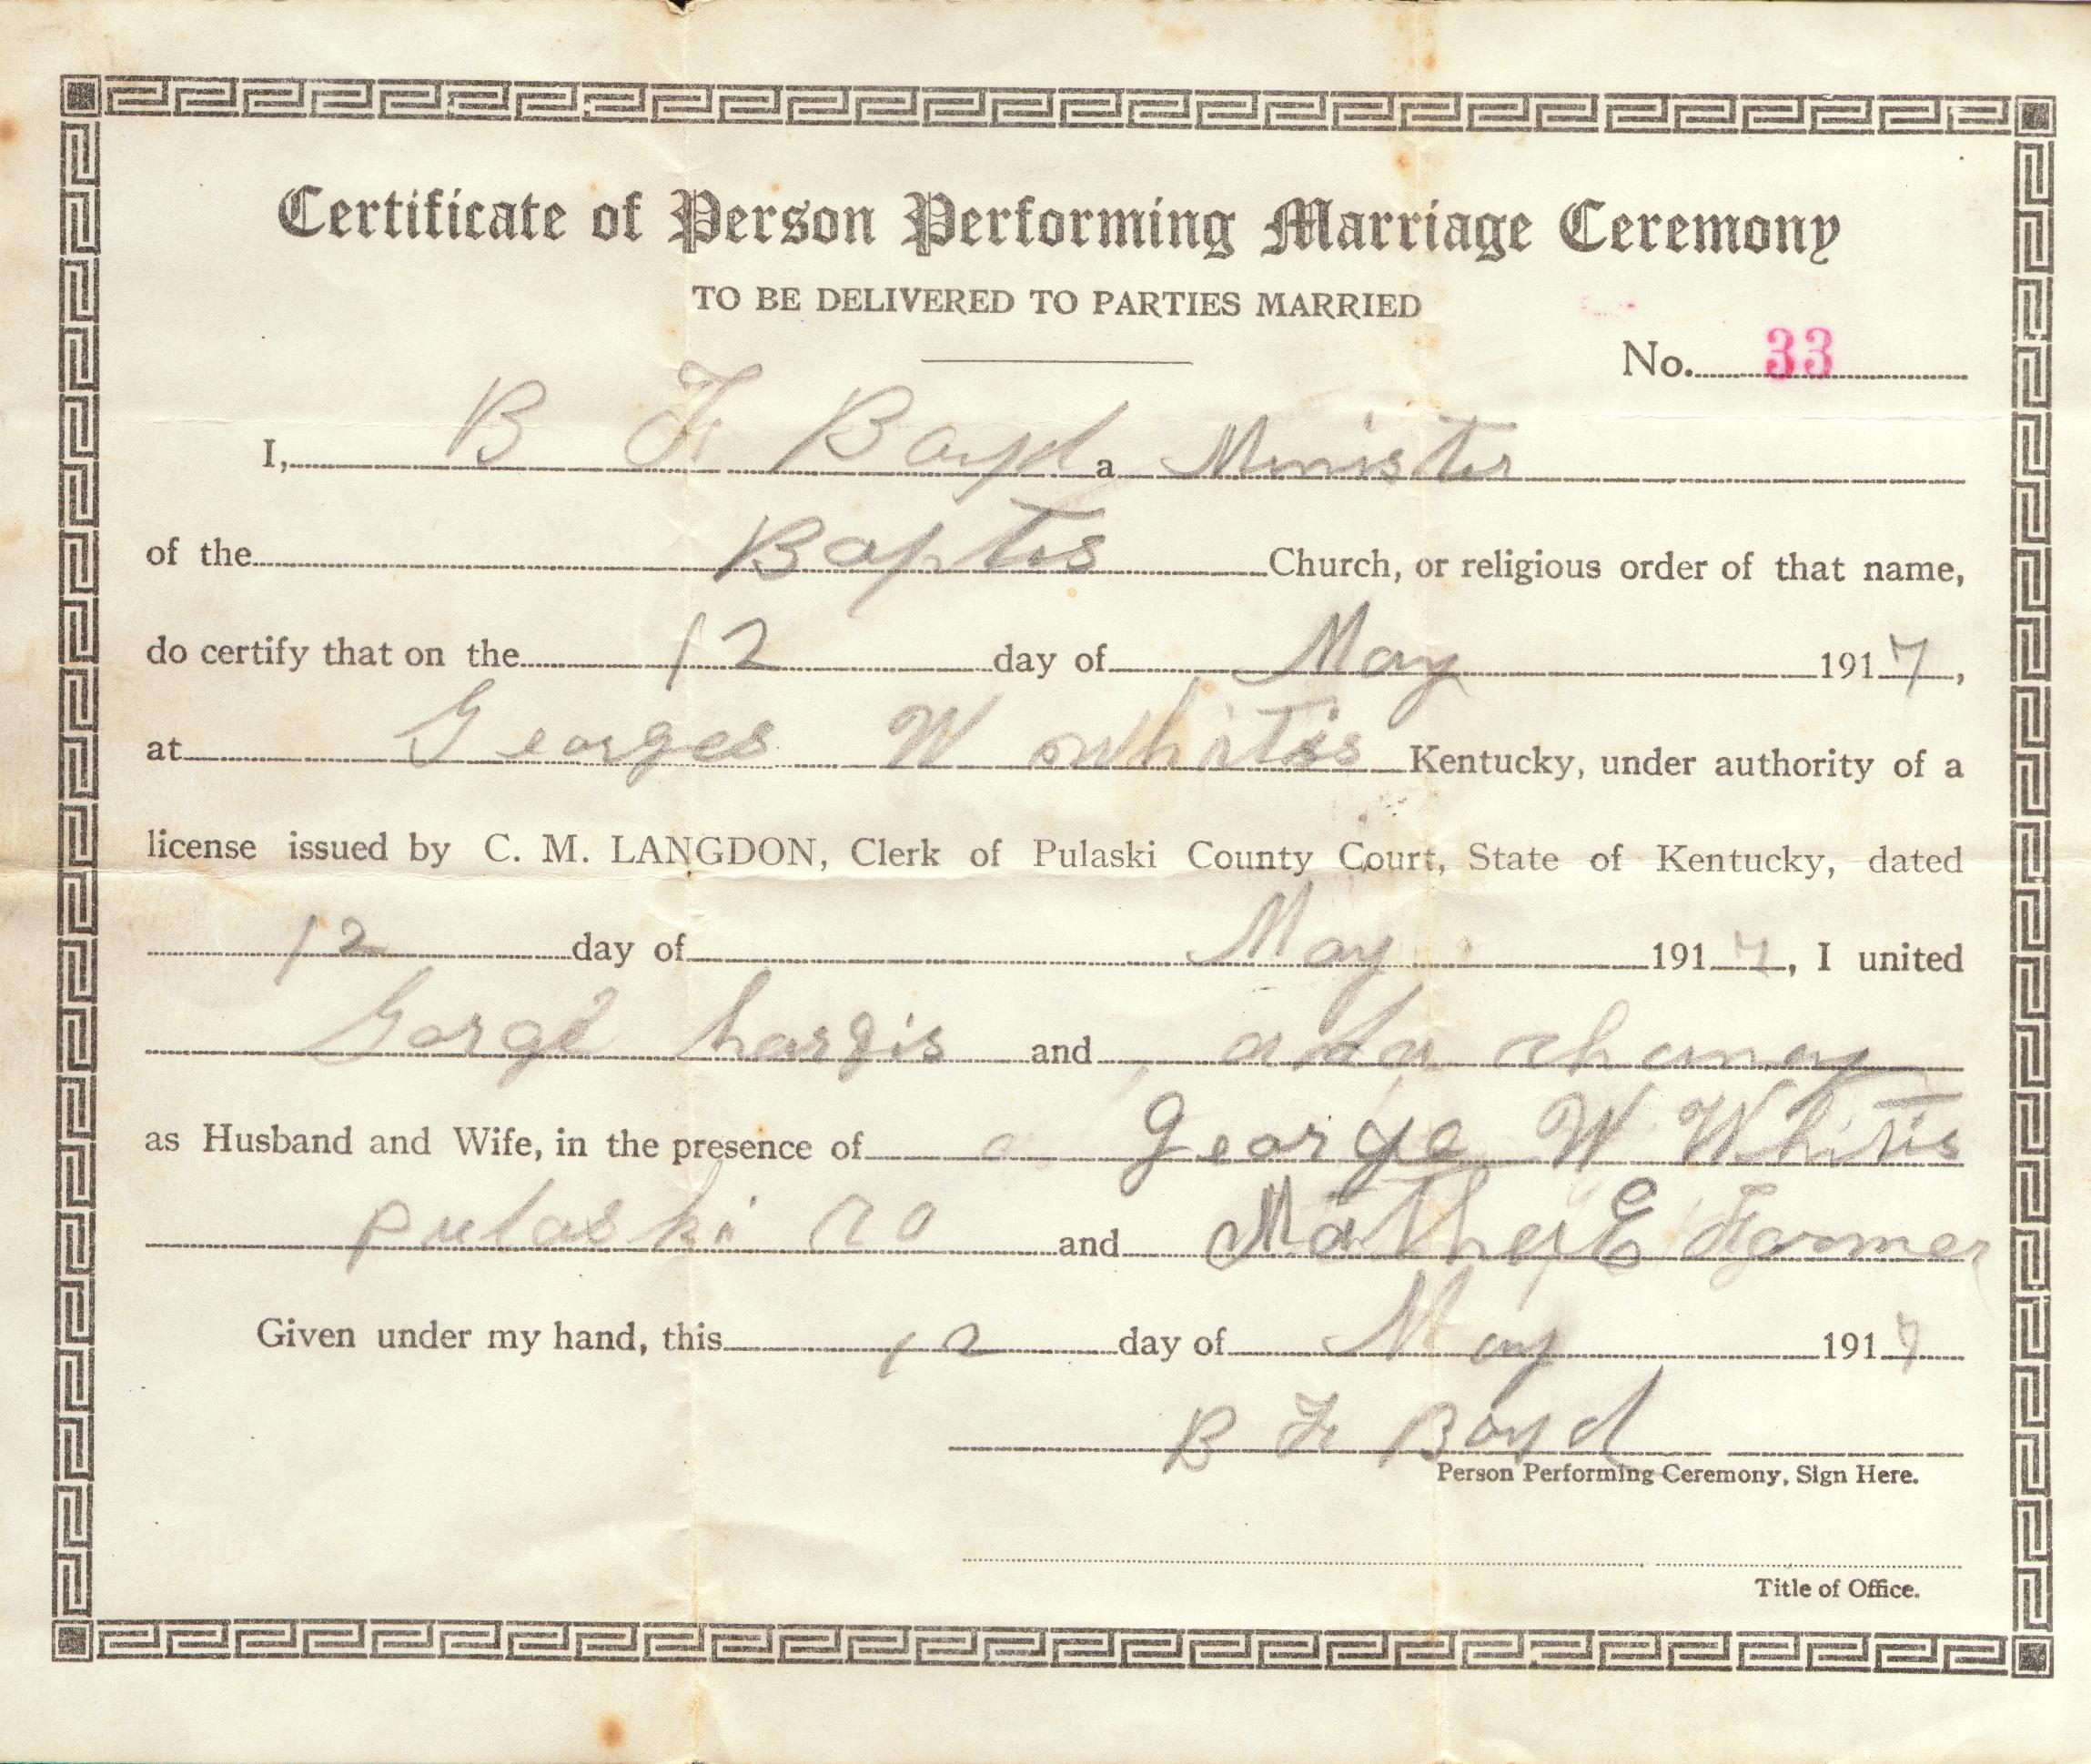 Certificate of Person Performing Marriage Ceremony
TO BE DELIVERED TO PARTIES MARRIED
No. 33
I, B F Boyd a Minister
of the Baptis Church, or religious order of that name,
do certify that on the 12 day of May 1917,
at Georges W Whitis Kentucky, under authority of a
license issued by C. M. LANGDON, Clerk of Pulaski County Court, State of Kentucky, dated
12 day of May 1917, I united
Gorge hargis and
as Husband and Wife, in the presence of George W Whitis
pulaski and E Farmer
Given under my hand, this 12 day of May 1917
B F Boyd
Person Performing Ceremony, Sign Here.
Title of Office.